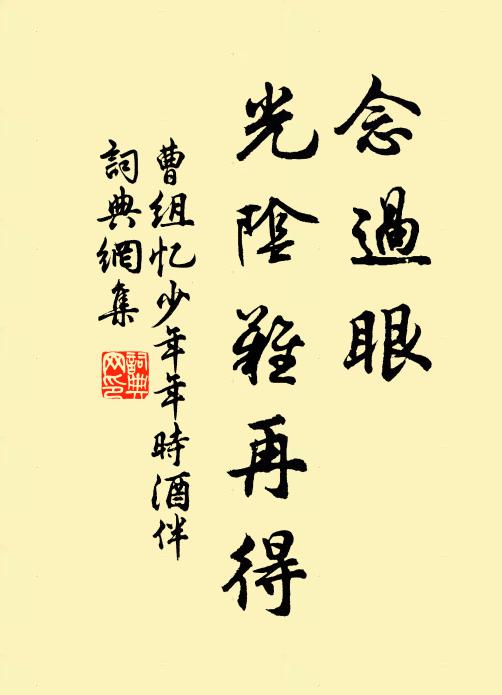 念過眼
光陰難再得
曹組忆少年年時酒伴
詞典網集
詞典網印